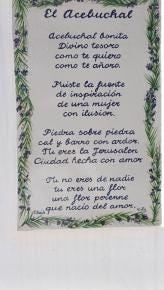 El Acebuchal
Acebuchal bonita
Divino tesoro
como te quiero
como te añoro.
Fuiste la fuente
de inspiración
de una mujer
con ilusion.
Piedra sobre piedra
cal y barro con ardor.
Tu eres la Jerusalen
Ciudad hecha con amor
Tu no eres de nadie
tu eres una flor
una flor perenne
que nacio del amor.